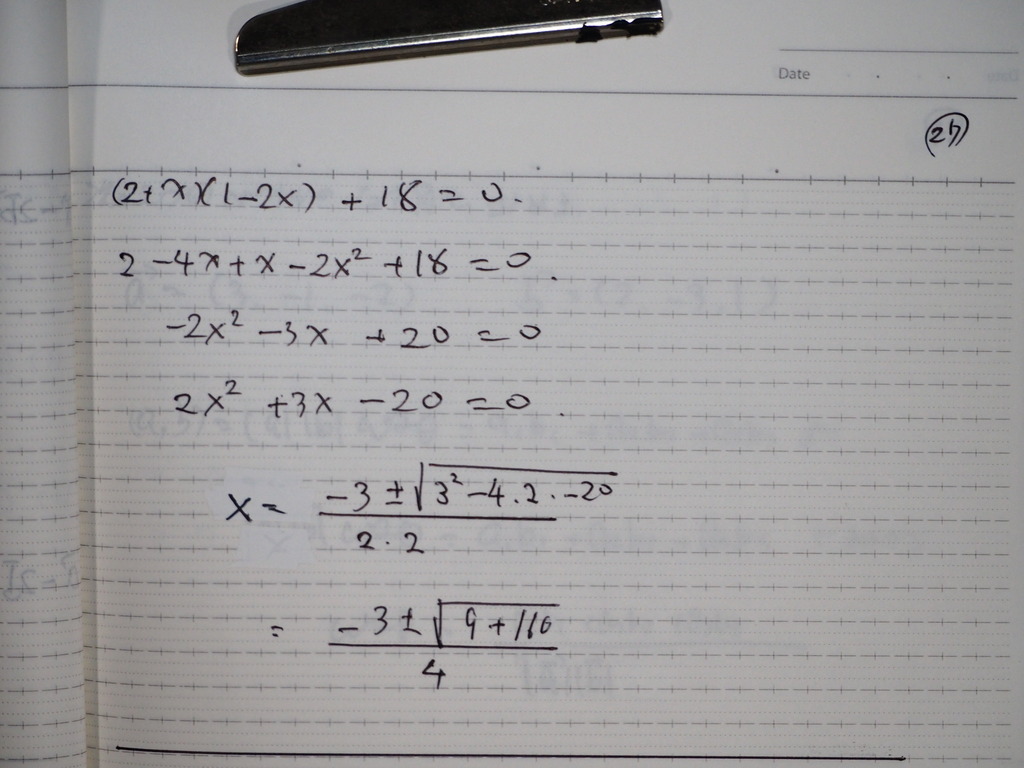 Date
(24)
(2+x)(1-2x) + 18 = 0.
2 -4x + x - 2x² + 18 = 0.
-2x² -3x + 20 = 0
2x² +3x - 20 = 0.
x = (-3 ± √(3² - 4.2.-20)) / (2.2)
= (-3 ± √(9 + 160)) / 4